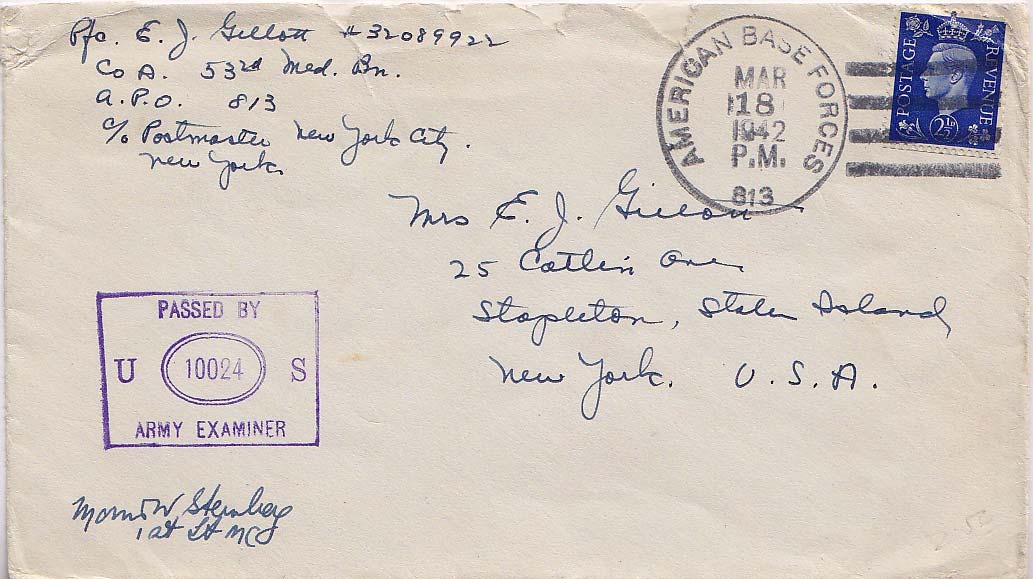 Pfc. E. J. Gillott #32089922
Co A. 53rd Med. Bn.
A.P.O. 813
c/o Postmaster New York City.
New York
AMERICAN BASE FORCES
MAR
18
1942
P.M.
813
POSTAGE REVENUE
2½D
Mrs E. J. Gillott
25 Catlin Ave
Stapleton, Staten Island
New York. U. S. A.
PASSED BY
U 10024 S
ARMY EXAMINER
Morris W Steinberg
1st Lt MC